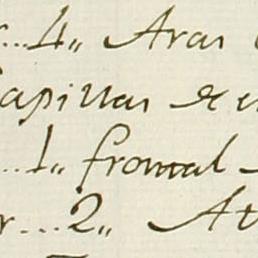 ...4,, Aras
apillas de
...1,, frontal
...2,, At